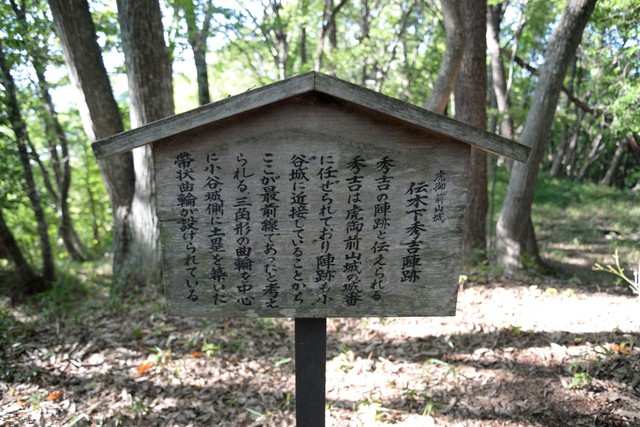 虎御前山城
伝木下秀吉陣跡
秀吉の陣跡と伝えられる
秀吉は虎御前山城の城番
に任ぜられており陣跡も小
谷城に近接していることから
ここが最前線であったと考え
られる三角形の曲輪を中心
に小谷城側に土塁を築いた
帯状曲輪が設けられている